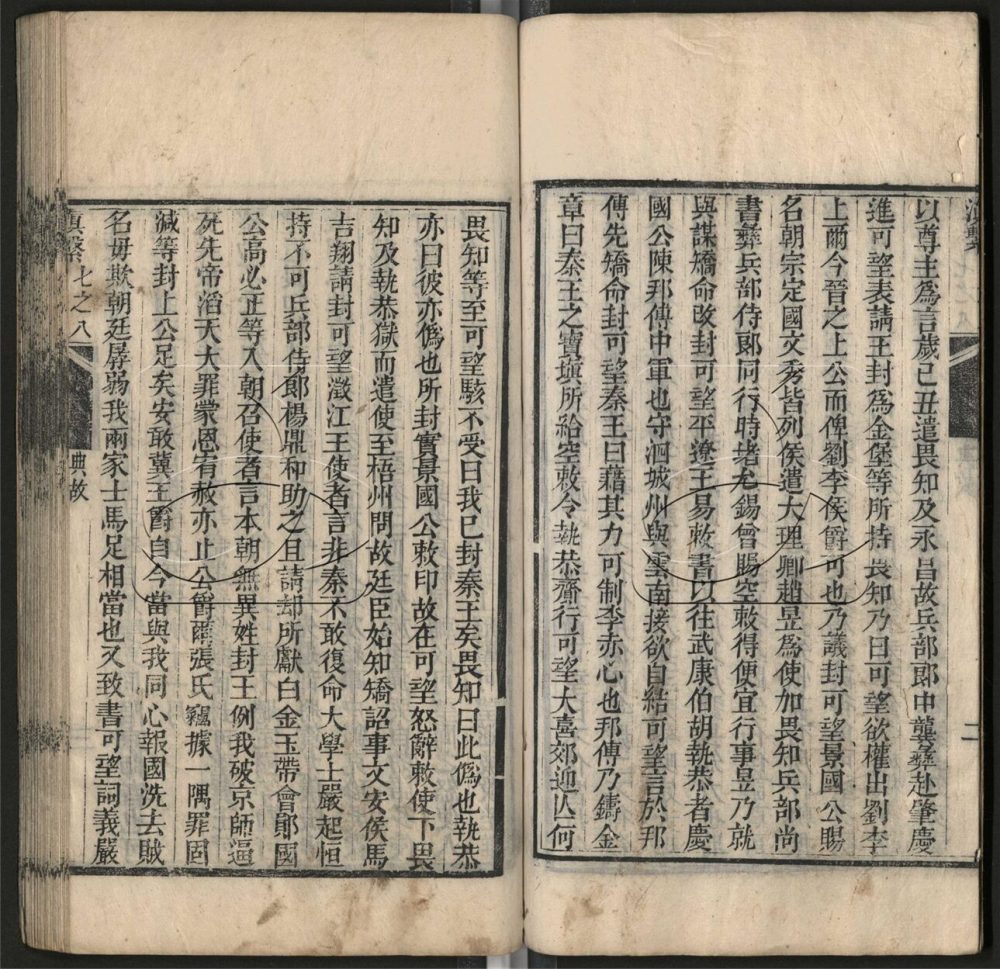 滇繫
以尊主爲言歲己丑遣畏知及永昌故兵部郎中龔彝赴肇慶
進可望表請王封爲金堡等所持畏知乃曰可望欲權出劉李
上爾今晉之上公而俾劉李侯爵可也乃議封可望景國公賜
名朝宗定國文秀皆列侯遣大理卿趙昱爲使加畏知兵部尚
書彝兵部侍郎同行時堵允錫曾賜空敕得便宜行事昱乃就
與謀矯命改封可望平遼王易敕書以往武康伯胡執恭者慶
國公陳邦傅中軍也守泗城州與雲南接欲自結可望言於邦
傅先矯命封可望秦王曰藉其力可制李赤心也邦傅乃鑄金
章曰秦王之寶塡所給空敕令執恭齎行可望大喜郊迎亾何
二
畏知等至可望駭不受曰我已封秦王矣畏知曰此僞也執恭
亦曰彼亦僞也所封實景國公敕印故在可望怒辭敕使下畏
知及執恭獄而遣使至梧州問故廷臣始知矯詔事文安侯馬
吉翔請封可望澂江王使者言非秦不敢復命大學士嚴起恒
持不可兵部侍郎楊鼎和助之且請却所獻白金玉帶會鄖國
公高必正等入朝召使者言本朝無異姓封王例我破京師逼
死先帝滔天大罪蒙恩宥赦亦止公爵爾張氏竊據一隅罪固
減等封上公足矣安敢冀王爵自今當與我同心報國洗去賊
名毋欺朝廷孱弱我兩家士馬足相當也又致書可望詞義嚴
滇繫七之八
典故